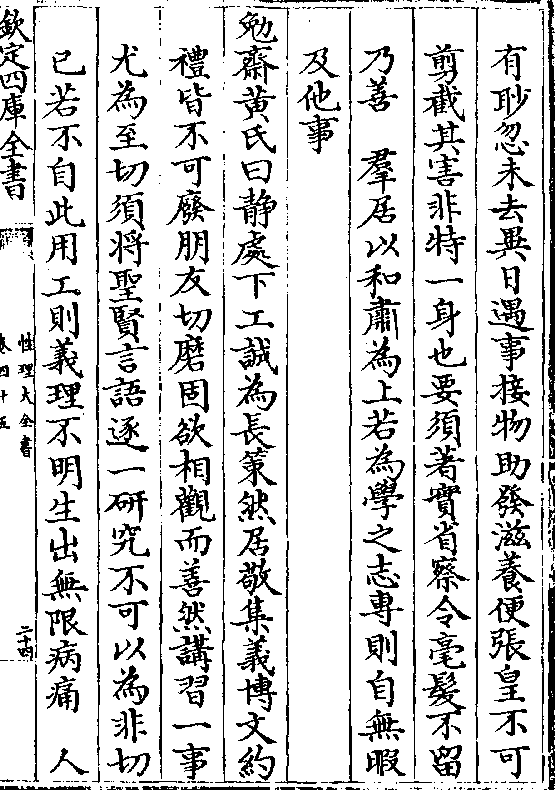 有眇忽未去異日遇事接物助發滋養便張皇不可
剪截其害非特一身也要須著實省察令毫髮不留
乃善　羣居以和肅為上若為學之志專則自無暇
及他事
勉齋黃氏曰靜處下工誠為長策然居敬集義博文約
禮皆不可廢朋友切磨固欲相觀而善然講習一事
尤為至切須將聖賢言語逐一研究不可以為非切
已若不自此用工則義理不明生出無限病痛　人
欽定四庫全書
性理大全書
卷四十五
二十四